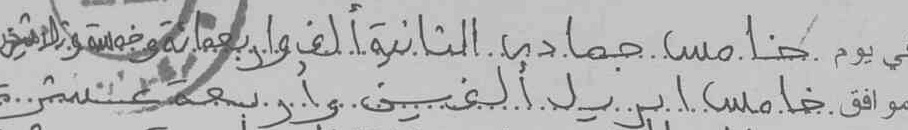 في يوم خامس جمادى الثانية ألف واربعمائة وخمسة وثلاثين
موافق خامس ابريل ألفين وأربعة عشرة